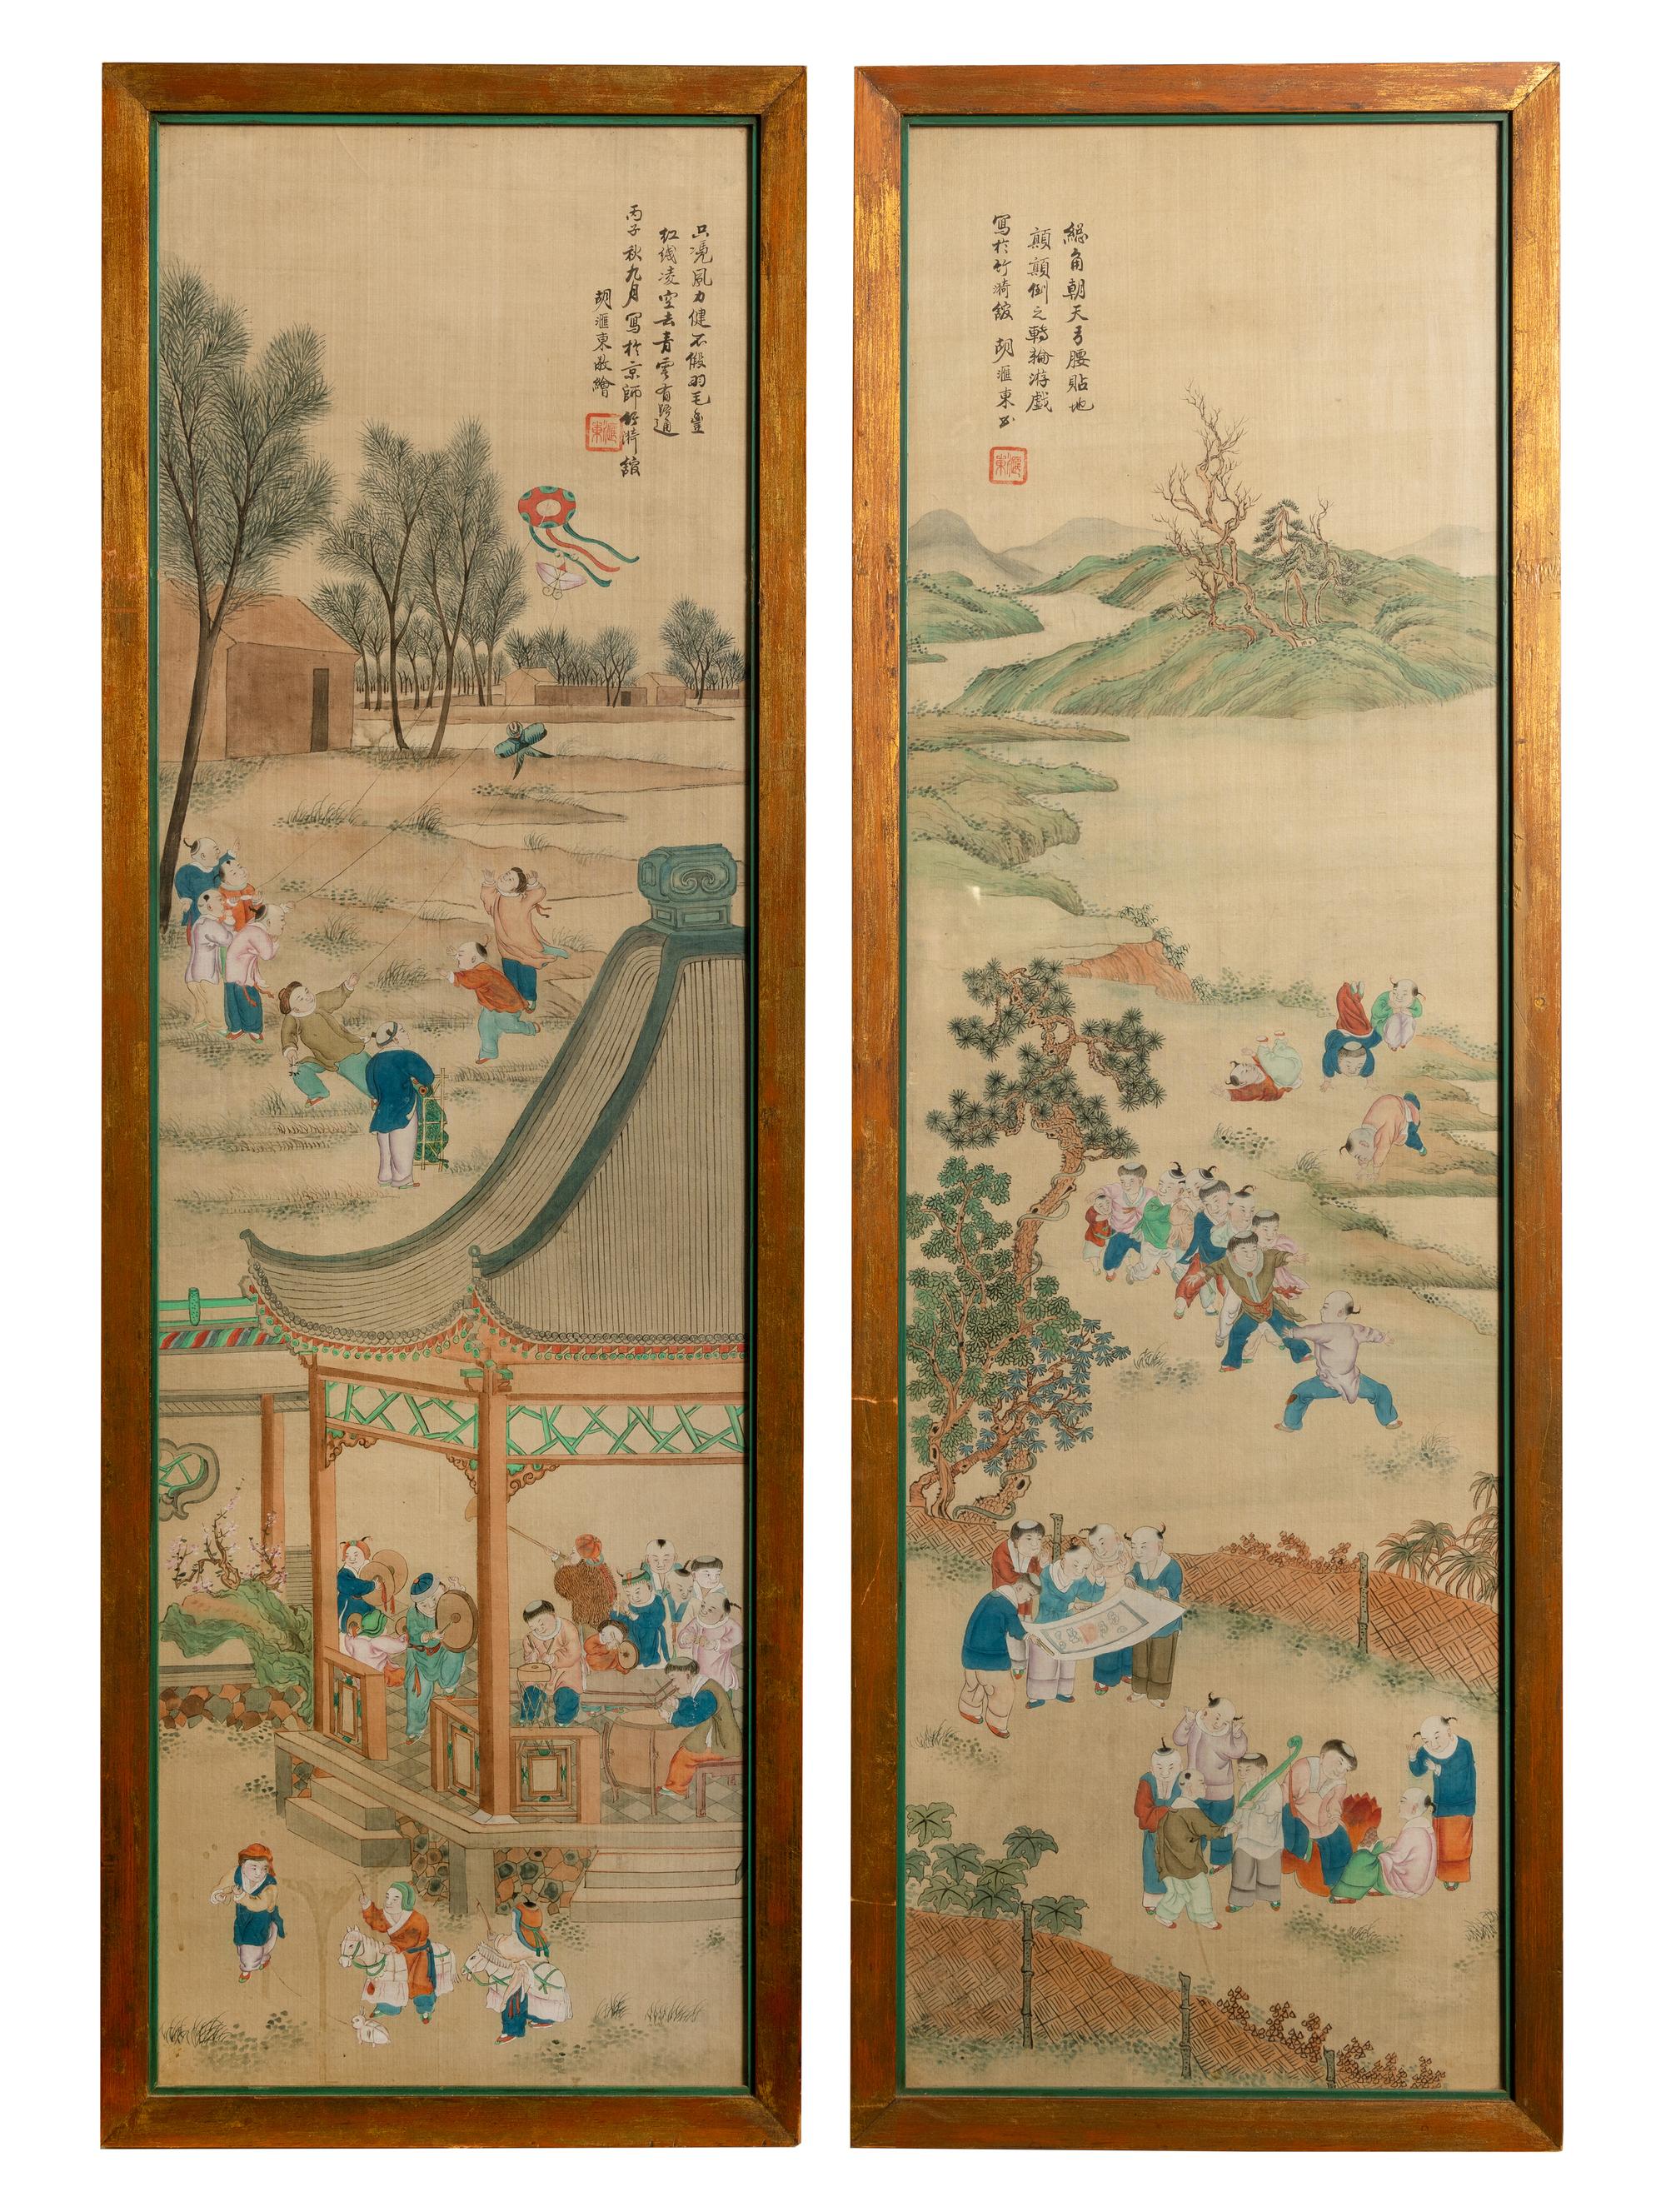 只凴風力健不假羽毛豐
紅線凌空去青雲有路通
丙子秋九月寫於京師竹漪館
胡滙東敬繪
滙東
總角朝天弓腰貼地
顛顛倒之轉輪游戲
寫於竹漪館 胡滙東
滙東